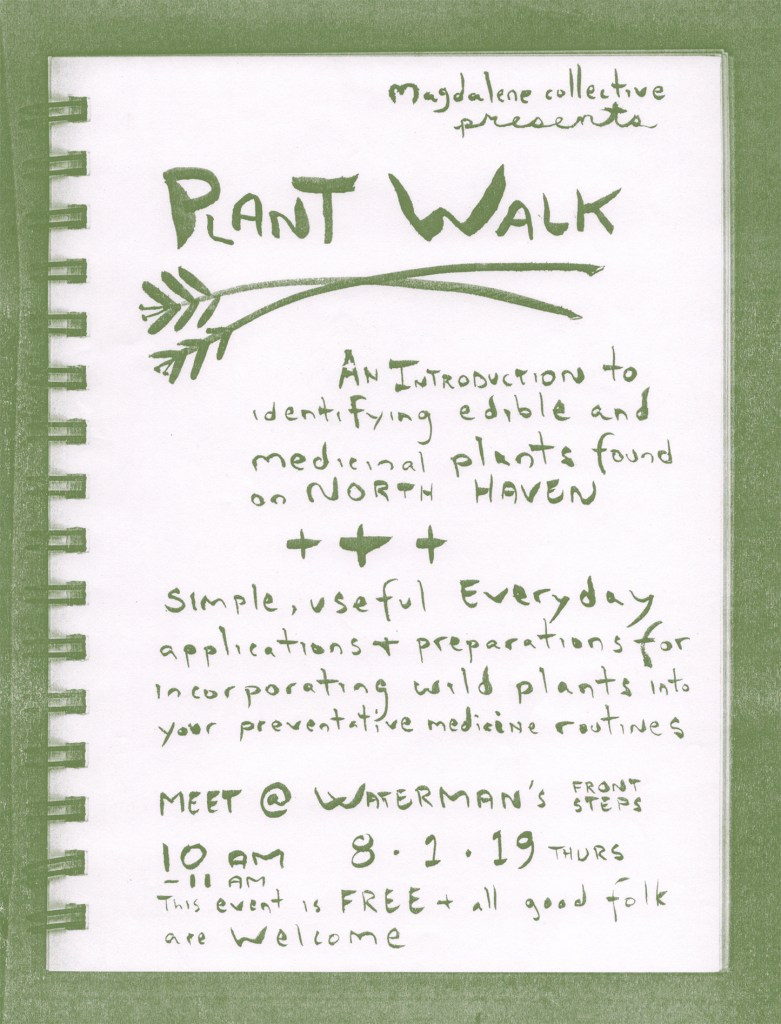 Magdalene collective
presents
PLANT WALK
AN INTRODUCTION to
identifying edible and
medicinal plants found
on NORTH HAVEN
+ + +
SIMPLE, useful Everyday
applications + preparations for
incorporating wild plants into
your preventative medicine routines
MEET @ WATERMAN'S FRONT STEPS
10 AM 8.1.19 THURS
-11 AM
This event is FREE + all good folk
are Welcome